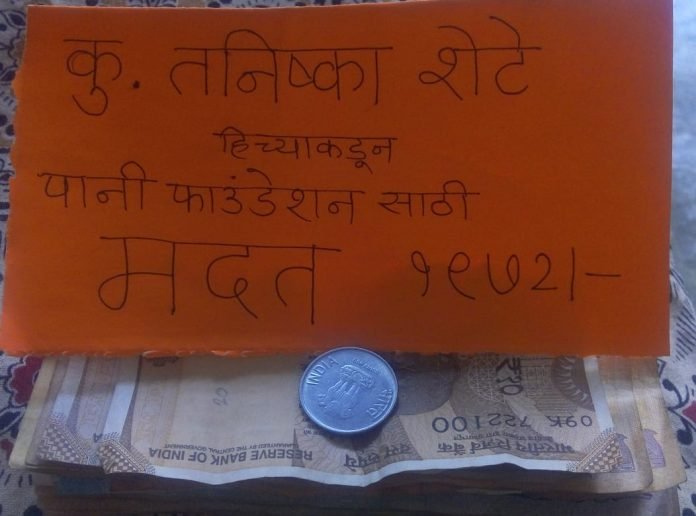 कु. तनिष्का शेटे
हिच्याकडून
पानी फाउंडेशन साठी
मदत १९७२/-
INDIA भारत
₹10
09K 722100
भारतीय रिज़र्व बैंक
दस रुपये
RESERVE BANK OF INDIA
GUARANTEED BY THE CENTRAL GOVERNMENT